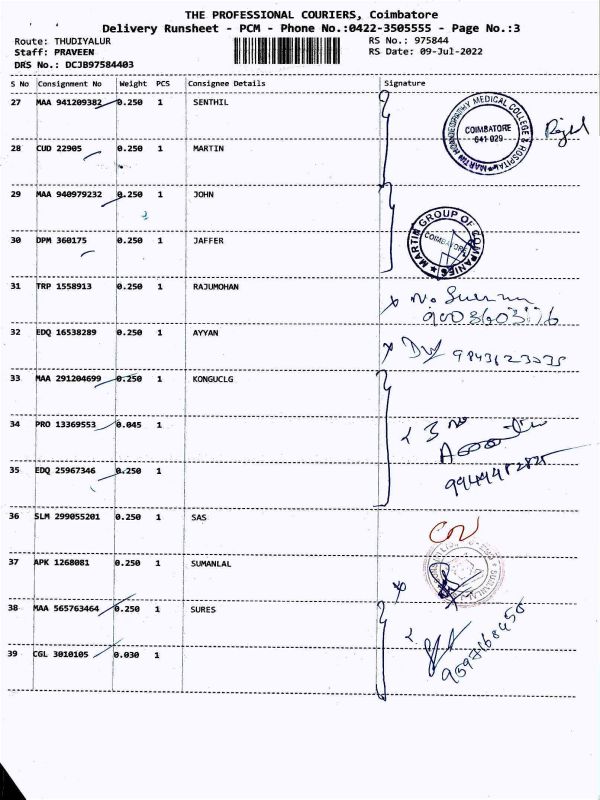 THE PROFESSIONAL COURIERS, Coimbatore
Delivery Runsheet - PCM - Phone No.:0422-3505555 - Page No.:3
Route: THUDIYALUR RS No.: 975844
Staff: PRAVEEN RS Date: 09-Jul-2022
DRS No.: DCJB97584403
S No Consignment No Weight PCS Consignee Details Signature
27 MAA 941209382 0.250 1 SENTHIL
MARTIN HOMOEOPATHY MEDICAL COLLEGE & HOSPITAL
COIMBATORE
641 029
28 CUD 22905 0.250 1 MARTIN
29 MAA 940979232 0.250 1 JOHN
30 DPM 360175 0.250 1 JAFFER
MARTIN GROUP OF COMPANIES
COIMBATORE
31 TRP 1558913 0.250 1 RAJUMOHAN
32 EDQ 16538289 0.250 1 AYYAN
33 MAA 291204699 0.250 1 KONGUCLG
34 PRO 13369553 0.045 1
35 EDQ 25967346 0.250 1
36 SLM 299055201 0.250 1 SAS
37 APK 1268081 0.250 1 SUMANLAL
38 MAA 565763464 0.250 1 SURES
39 CGL 3010105 0.030 1